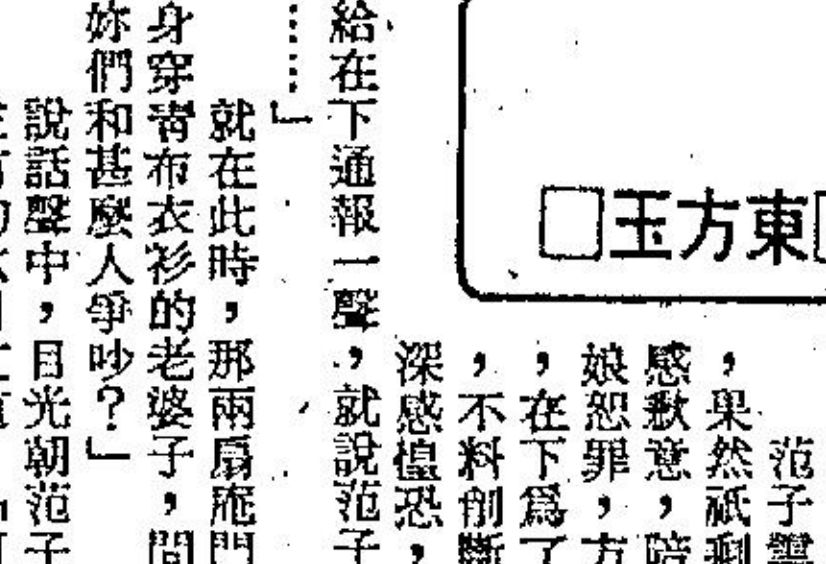 □東方玉□
范子雲
，果然祇剩
感歉意，陪
娘恕罪，方
，在下爲了
，不料削斷
深感惶恐，
給在下通報一聲，就說范子
……」
就在此時，那兩扇庵門
身穿青布衣衫的老婆子，問
妳們和甚麼人爭吵？」
說話聲中，目光朝范子